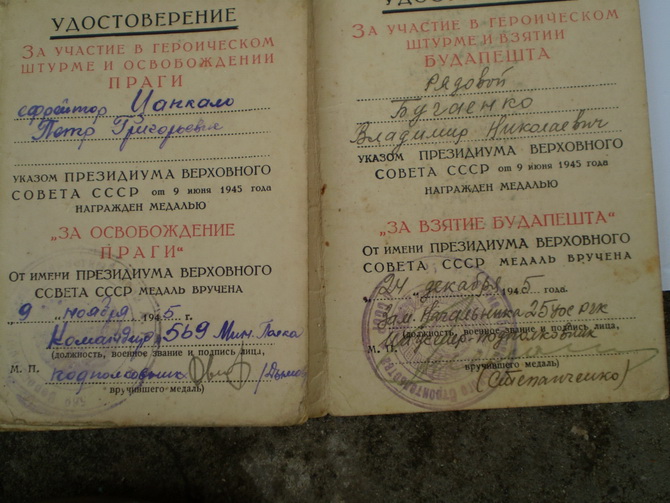 УДОСТОВЕРЕНИЕ
ЗА УЧАСТИЕ В ГЕРОИЧЕСКОМ
ШТУРМЕ И ОСВОБОЖДЕНИИ
ПРАГИ
ефрейтор Цанкало
Петр Григорьевич
УКАЗОМ ПРЕЗИДИУМА ВЕРХОВНОГО
СОВЕТА СССР от 9 июня 1945 года
НАГРАЖДЕН МЕДАЛЬЮ
„ЗА ОСВОБОЖДЕНИЕ
ПРАГИ“
От имени ПРЕЗИДИУМА ВЕРХОВНОГО
СОВЕТА СССР МЕДАЛЬ ВРУЧЕНА
„9“ ноября 1945 г.
Командир 569 Мин. Полка
(должность, военное звание и подпись лица,
М. П. подполковник
вручившего медаль)
ЗА УЧАСТИЕ В ГЕРОИЧЕСКОМ
ШТУРМЕ И ВЗЯТИИ
БУДАПЕШТА
рядовой
Бугаенко
Владимир Николаевич
УКАЗОМ ПРЕЗИДИУМА ВЕРХОВНОГО
СОВЕТА СССР от 9 июня 1945 года
НАГРАЖДЕН МЕДАЛЬЮ
„ЗА ВЗЯТИЕ БУДАПЕШТА“
От имени ПРЕЗИДИУМА ВЕРХОВНОГО
СОВЕТА СССР МЕДАЛЬ ВРУЧЕНА
„24“ декабря 1945 года.
Зам. Начальника
(должность, военное звание и подпись лица,
подполковник
М. П.
вручившего медаль)
(Степанченко)